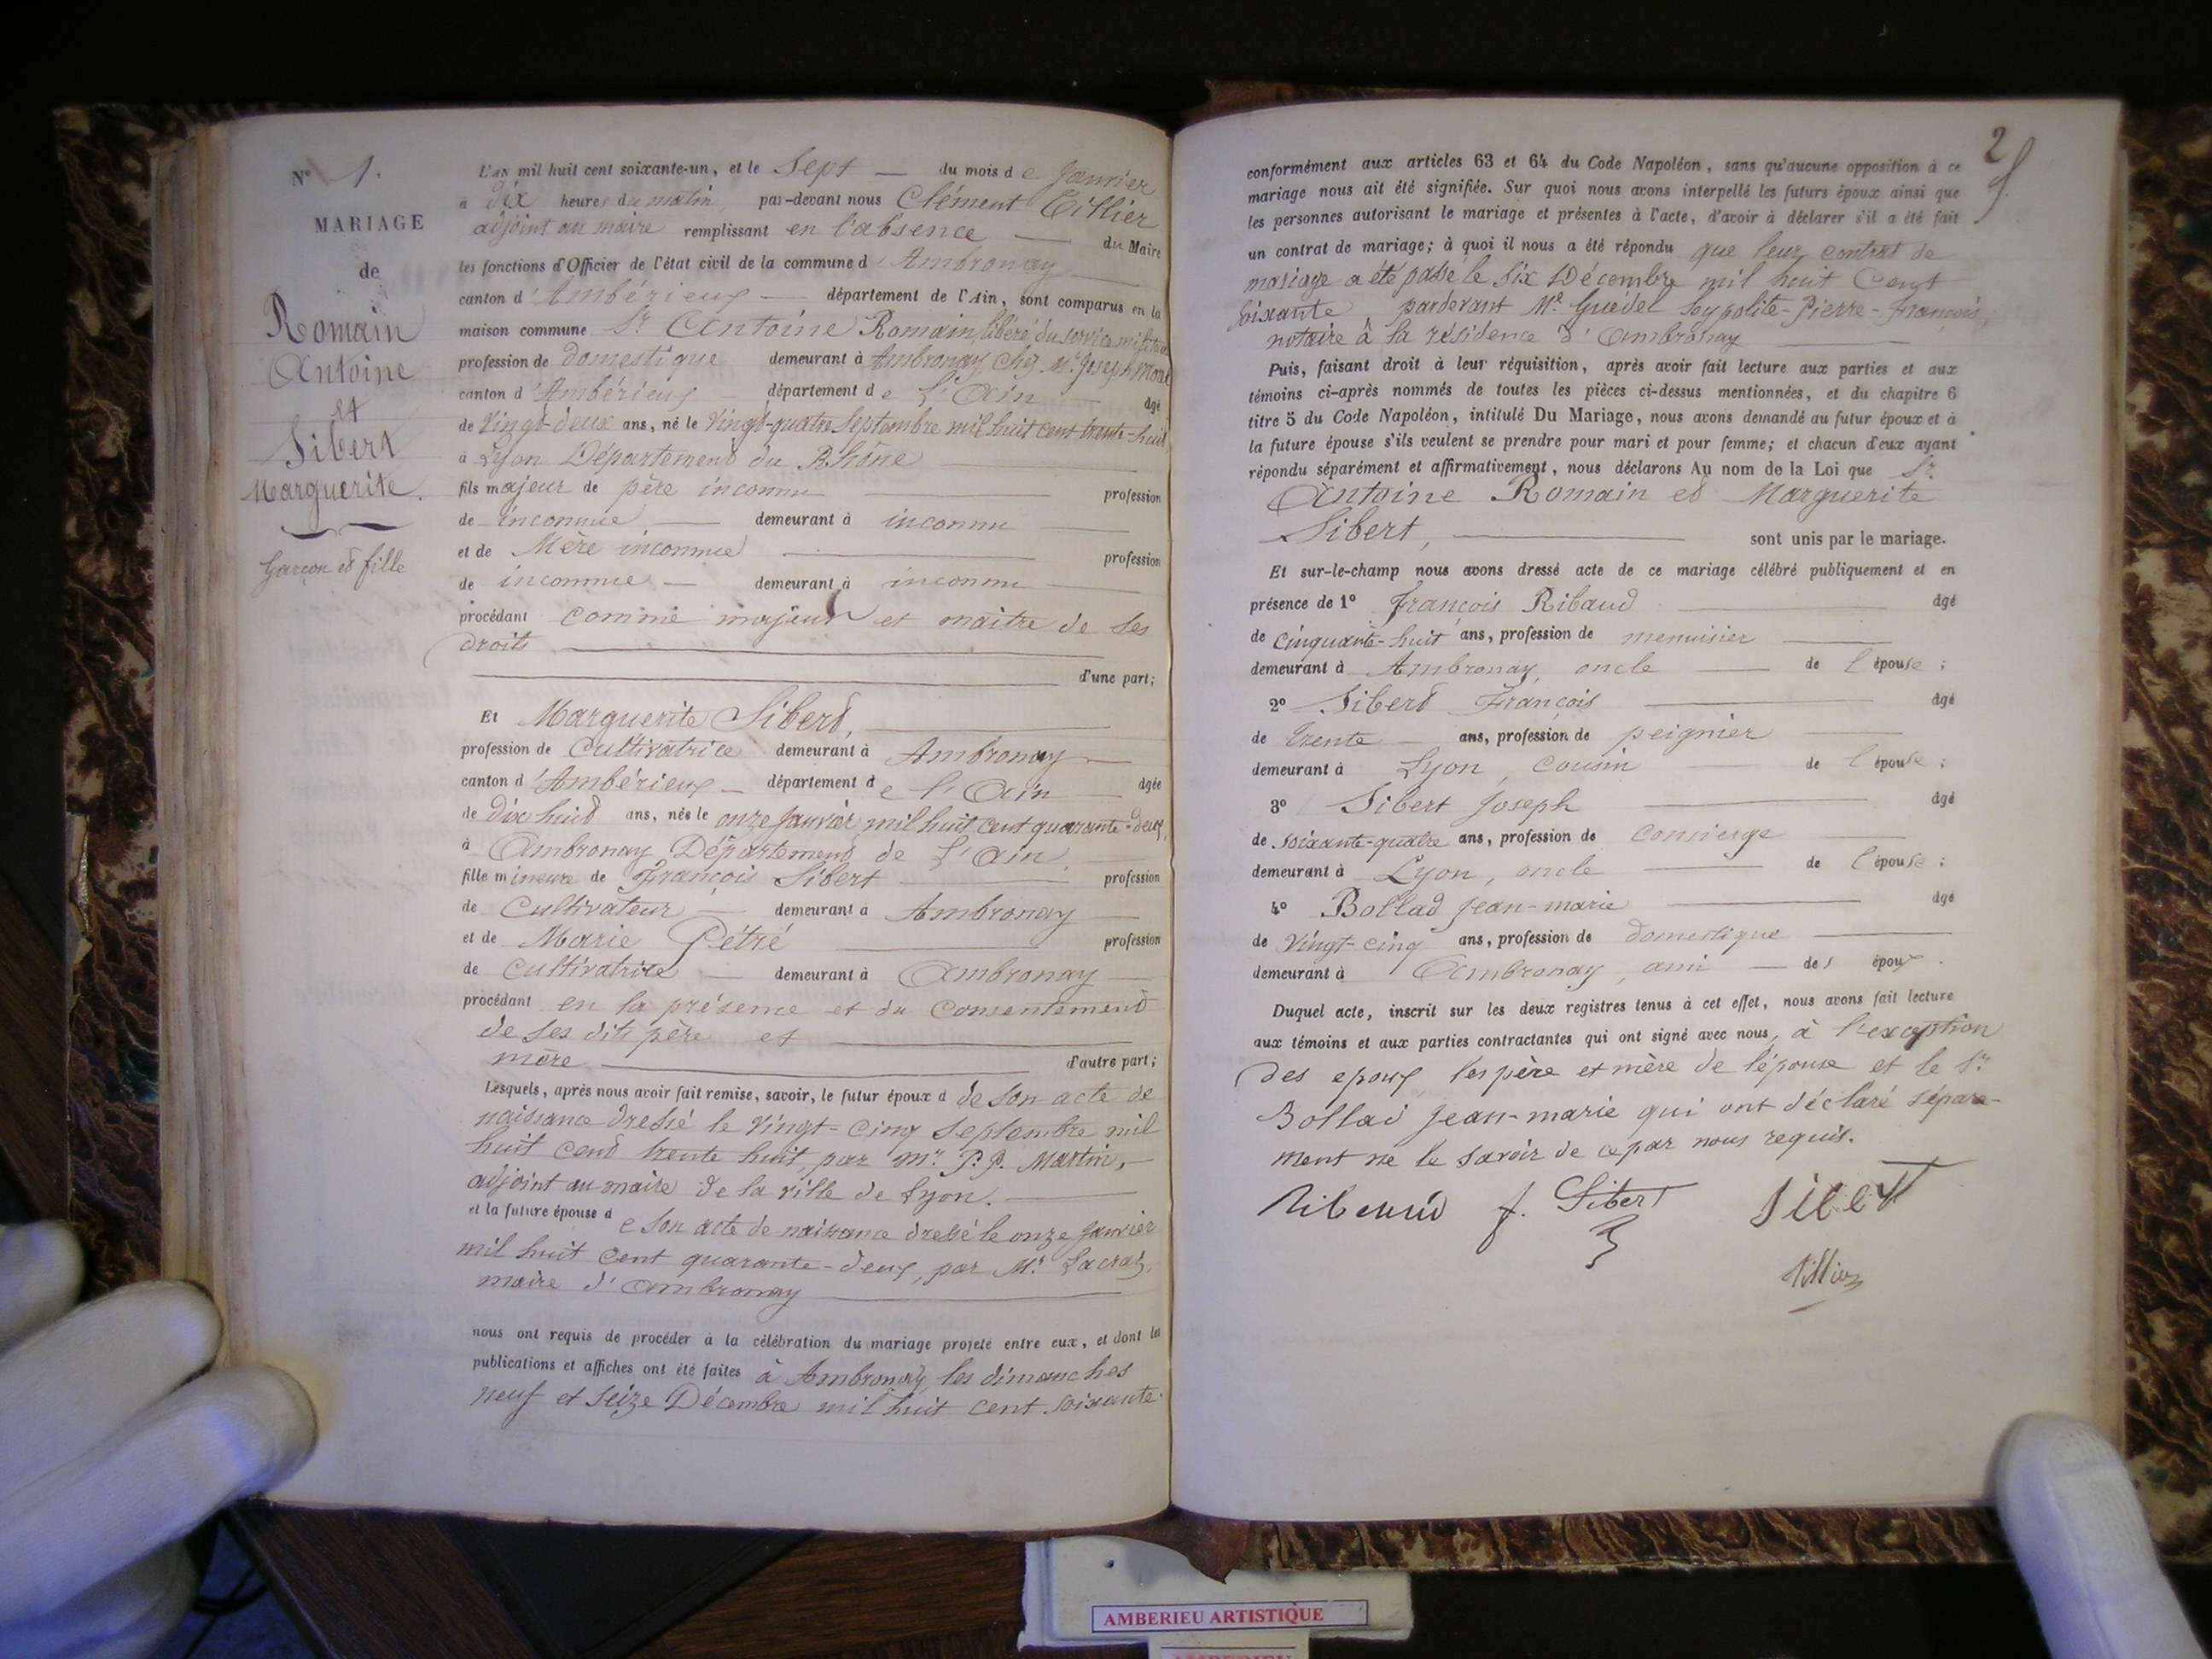 N° 1.
MARIAGE
de
Romain
Antoine
et
Sibert
Marguerite.
Garçon et fille
L'AN mil huit cent soixante-un, et le Sept du mois de Janvier
à Dix heures du matin, par-devant nous Clément Tillier
adjoint au maire remplissant en l'absence du Maire
les fonctions d'Officier de l'état civil de la commune d'Ambronay
canton d'Ambérieux département de l'Ain, sont comparus en la
maison commune Sr Antoine Romain, libéré du service militaire
profession de domestique demeurant à Ambronay, chez Mr Joseph
canton d'Ambérieux département de L'Ain âgé
de Vingt-deux ans, né le Vingt-quatre Septembre mil huit cent trente-huit,
à Lyon Département du Rhône
fils majeur de père inconnu profession
de inconnue demeurant à inconnu
et de Mère inconnue profession
de inconnue demeurant à inconnu
procédant comme majeur et maître de ses
droits
d'une part;
Et Marguerite Sibert,
profession de Cultivatrice demeurant à Ambronay
canton d'Ambérieux département de l'Ain âgée
de dix huit ans, née le onze Janvier mil huit cent quarante-deux,
à Ambronay Département de L'Ain
fille mineure de François Sibert profession
de Cultivateur demeurant à Ambronay
et de Marie Pétré profession
de Cultivatrice demeurant à Ambronay
procédant en la présence et du Consentement
de ses dits père et
mère d'autre part;
Lesquels, après nous avoir fait remise, savoir, le futur époux d de son acte de
naissance dressé le Vingt-cinq Septembre mil
huit cent trente huit, par Mr P. P. Martin,
adjoint au maire de la ville de Lyon.
et la future épouse de son acte de naissance dressé le onze Janvier
mil huit cent quarante-deux, par Mr
maire d'Ambronay
nous ont requis de procéder à la célébration du mariage projeté entre eux, et dont les
publications et affiches ont été faites à Ambronay, les dimanches
neuf et seize Décembre mil huit cent soixante
2
conformément aux articles 63 et 64 du Code Napoléon, sans qu'aucune opposition à ce
mariage nous ait été signifiée. Sur quoi nous avons interpellé les futurs époux ainsi que
les personnes autorisant le mariage et présentes à l'acte, d'avoir à déclarer s'il a été fait
un contrat de mariage; à quoi il nous a été répondu que leur contrat de
mariage a été passé le Six Décembre mil huit Cent
Soixante pardevant Me Guédel hypolite-Pierre-François,
notaire à la résidence d'Ambronay
Puis, faisant droit à leur réquisition, après avoir fait lecture aux parties et aux
témoins ci-après nommés de toutes les pièces ci-dessus mentionnées, et du chapitre 6
titre 5 du Code Napoléon, intitulé Du Mariage, nous avons demandé au futur époux et à
la future épouse s'ils veulent se prendre pour mari et pour femme; et chacun d'eux ayant
répondu séparément et affirmativement, nous déclarons Au nom de la Loi que Sr
Antoine Romain et Marguerite
Sibert, sont unis par le mariage.
Et sur-le-champ nous avons dressé acte de ce mariage célébré publiquement et en
présence de 1° François Ribaud âgé
de Cinquante-huit ans, profession de menuisier
demeurant à Ambronay, oncle de l'épouse;
2° Sibert François âgé
de trente ans, profession de peignier
demeurant à Lyon, Cousin de l'épouse;
3° Sibert Joseph âgé
de soixante-quatre ans, profession de Concierge
demeurant à Lyon, oncle de l'épouse;
4° Bollad Jean-marie âgé
de Vingt-cinq ans, profession de domestique
demeurant à Ambronay, ami des époux.
Duquel acte, inscrit sur les deux registres tenus à cet effet, nous avons fait lecture
aux témoins et aux parties contractantes qui ont signé avec nous, à l'exception
des epoux les père et mère de l'épouse et le Sr
Bollad Jean-marie qui ont déclaré séparé-
ment ne le savoir de ce par nous requis.
Ribaud f. Sibert Sibert
Tillier
AMBERIEU ARTISTIQUE
AMBERIEU